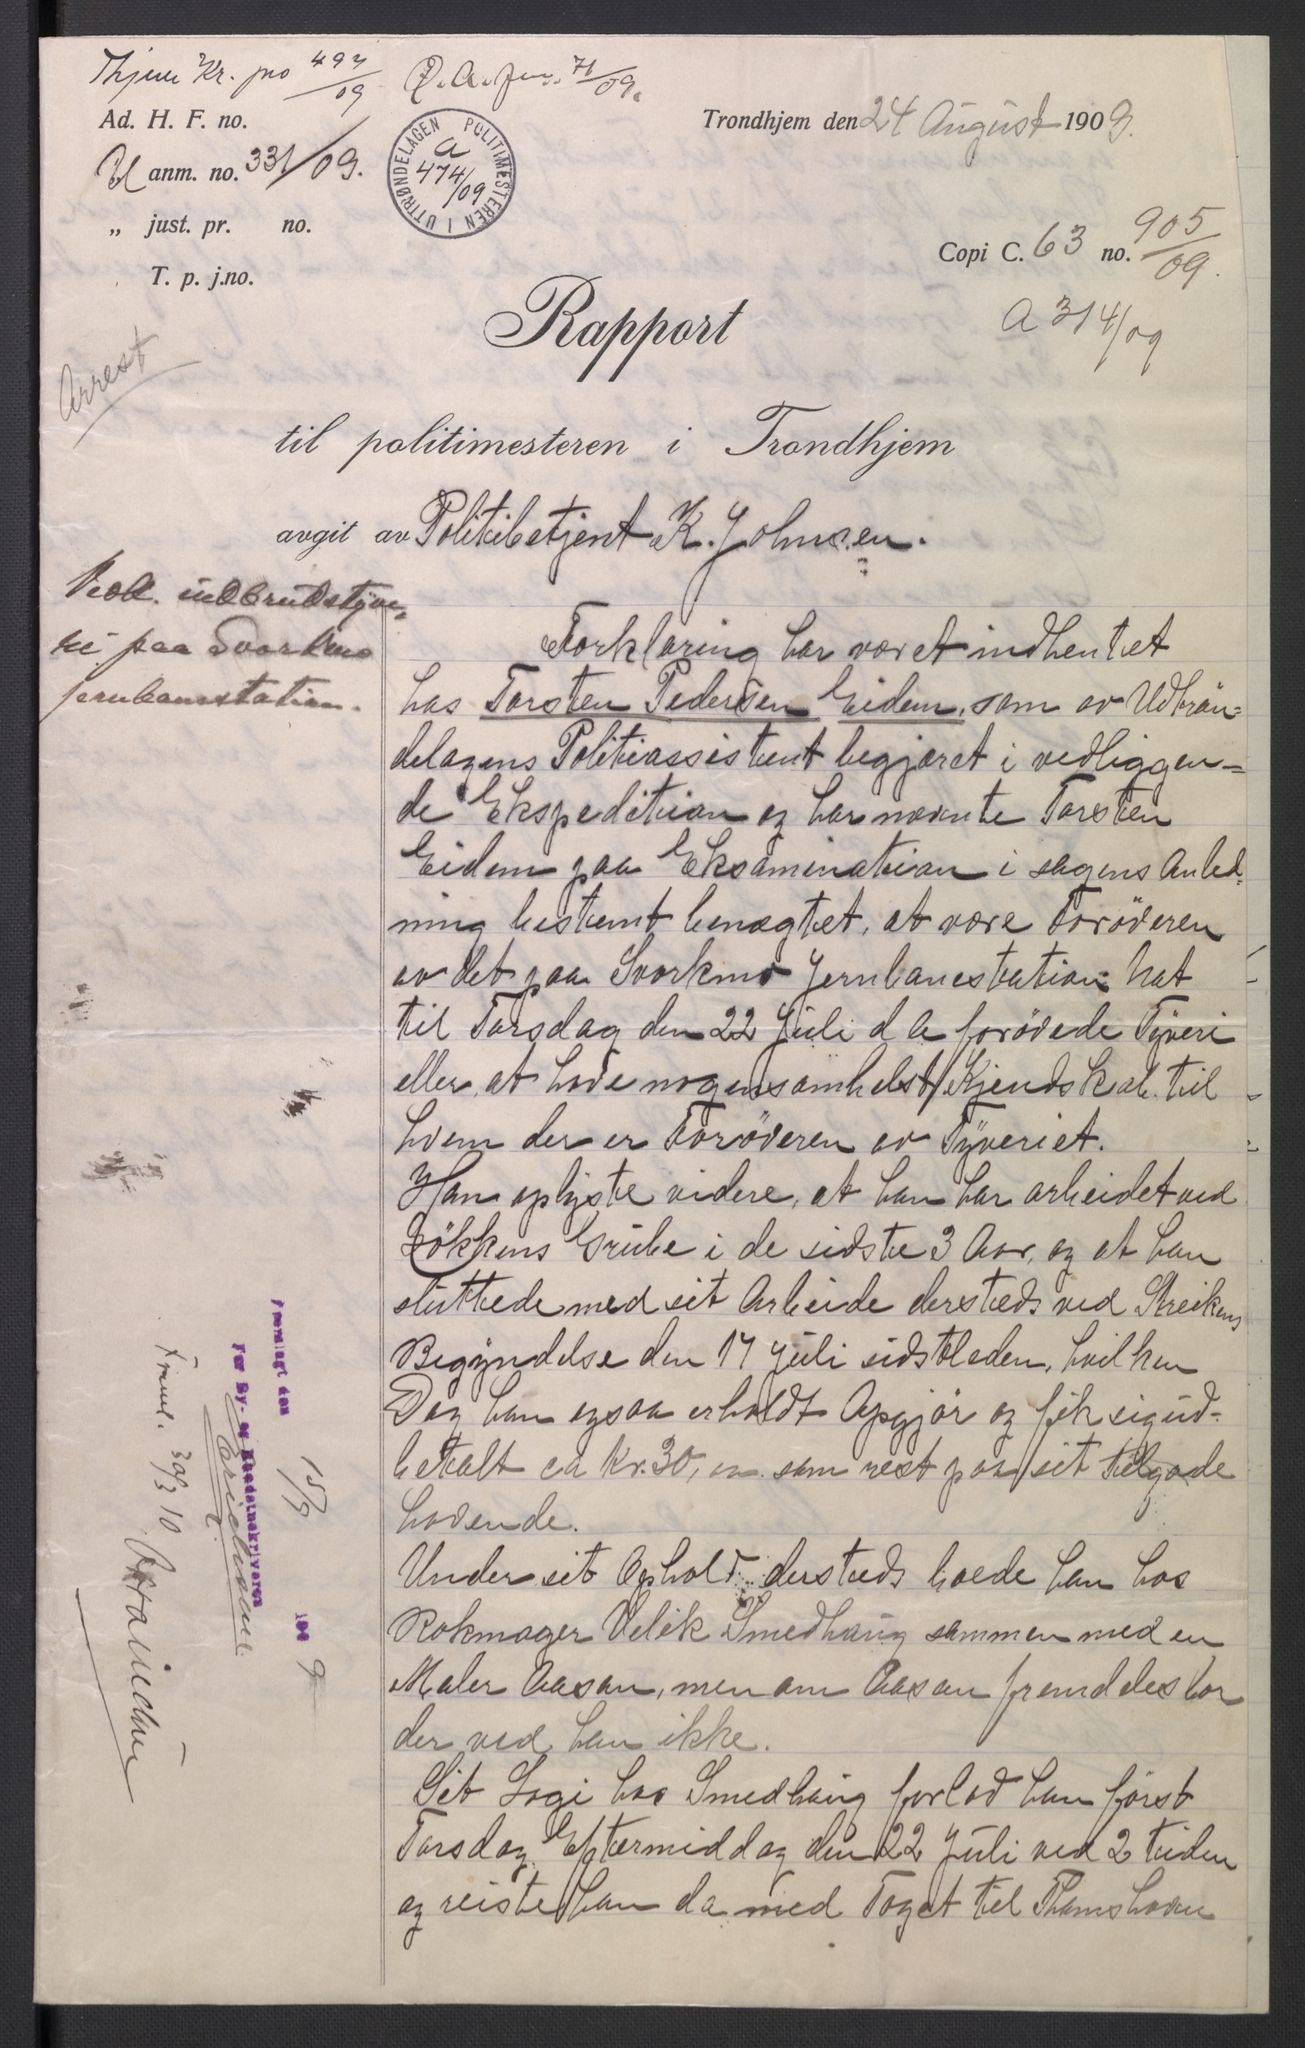 Thjem Kr. pro 497/09
P. A. jur. 71/09.
Ad. H. F. no.
Trondhjem den 24 August 1909.
U anm. no. 331/09.
POLITIMESTEREN I UTTRØNDELAGEN
a
474/09
„ just. pr. no.
Copi C. 63 no. 905/09.
T. p. j.no.
A 314/09
Rapport
Arrest
til politimesteren i Trondhjem
avgit av Politibetjent K. Johnsen.
Vedk. indbrudstyve-
ri paa Svorkmo
jernbanestation.
Forklaring har været indhentet
hos Torsten Pedersen Eidem, som av Udtrøn-
delagens Politiassistent begjæret i vedliggen-
de Ekspedition og har nævnte Torsten
Eidem paa Eksamination i sagens Anled-
ning bestemt benægtet, at være Forøveren
av det paa Svorkmo Jernbanestation Nat
til Torsdag den 22 Juli d A forøvede Tyveri
eller at have nogensomhelst Kjendskab til
hvem der er Forøveren av Tyveriet.
Han oplyste videre, at han har arbeidet ved
Løkkens Grube i de sidste 3 Aar, og at han
sluttede med sit Arbeide dersteds ved Streikens
Begyndelse den 17 Juli sidstleden, hvilken
Dag han ogsaa erholdt Opgjør og fik sig ud-
betalt ca Kr. 30, som rest paa sit tilgode
havende.
Under sit Ophold dersteds boede han hos
Rokmager Smedhaug sammen med en
Maler Aasan, men om Aasan fremdeles bor
der ved han ikke.
Sit Logi hos Smedhaug forlod han først
Torsdag Eftermiddag den 22 Juli ved 2 tiden
og reiste han da med Toget til Thamshavn
Fremlagt den 15/9 1909
For By- og Rådstueskriveren
Freml. 30/3 10